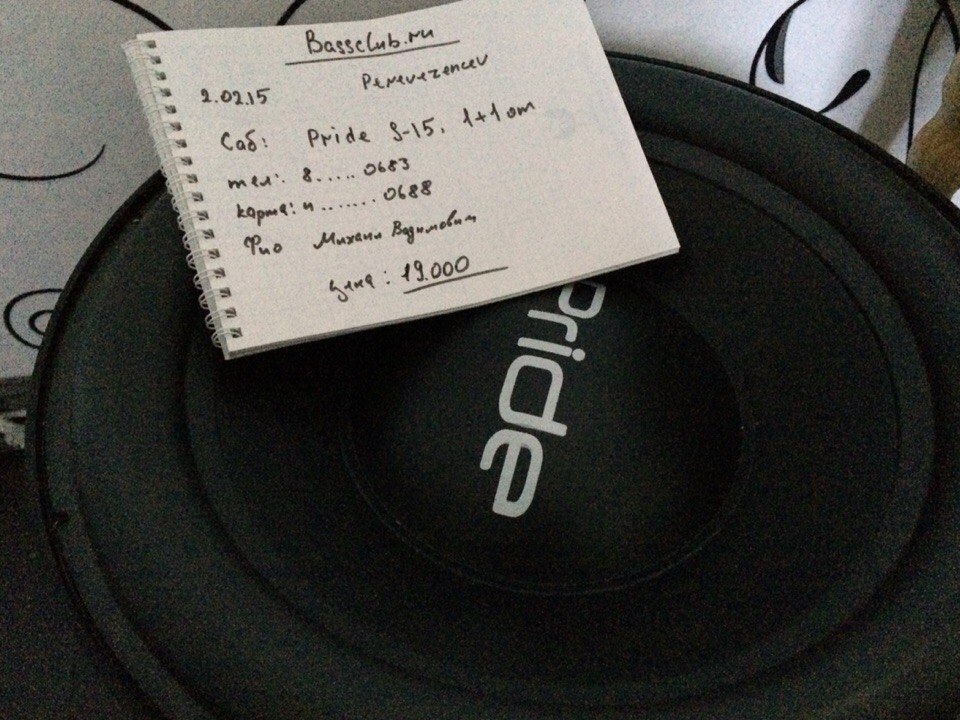 Bassclub.ru
Pereverzencev
2.02.15
Саб: Pride S-15. 1+1 om
тел: 8..... 0683
карта: 4....... 0688
Фио Михаил Вадимович
цена: 19.000
Pride